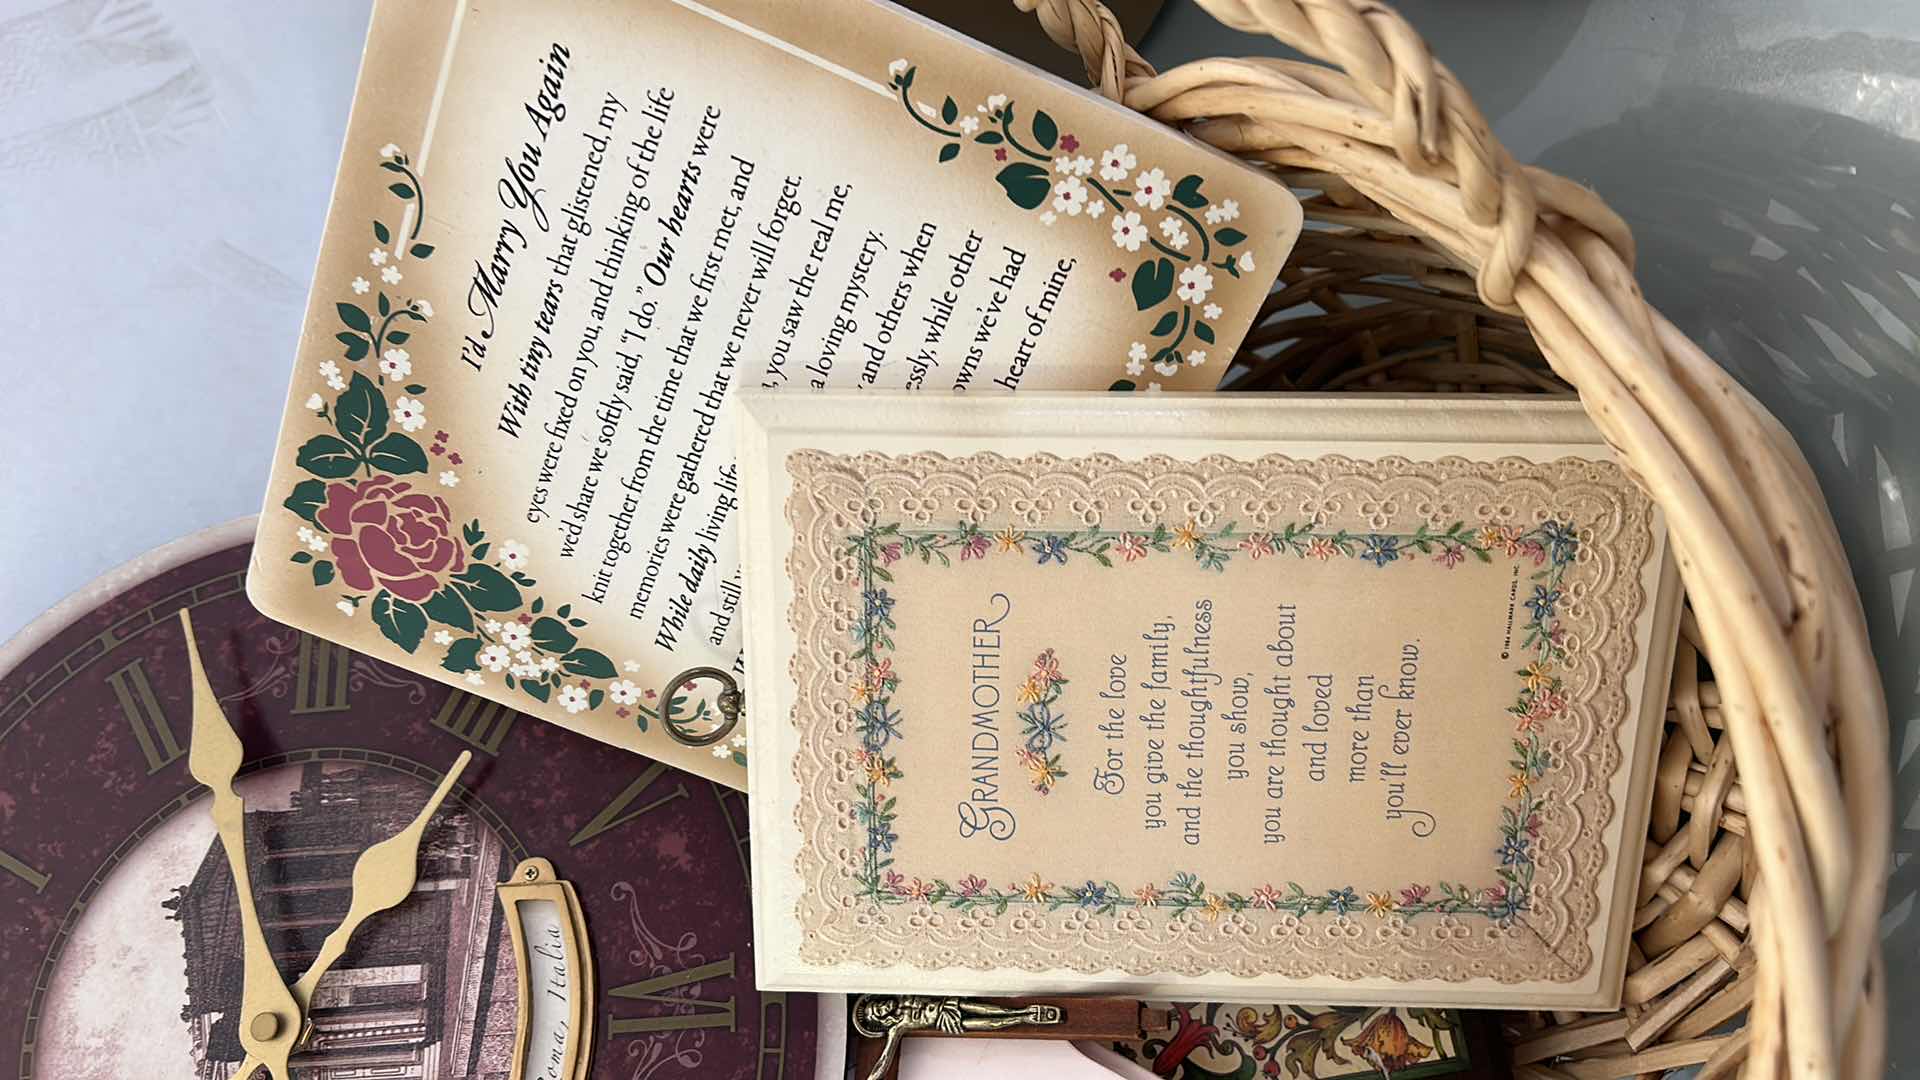 I
II
III
IIII
V
VI
Roma, Italia
I'd Marry You Again
With tiny tears that glistened, my
eyes were fixed on you, and thinking of the life
we'd share we softly said, "I do." Our hearts were
knit together from the time that we first met, and
memories were gathered that we never will forget.
While daily living
you saw the real me,
and still
a loving mystery.
and others when
while other
we've had
heart of mine,
GRANDMOTHER
For the love
you give the family,
and the thoughtfulness
you show,
you are thought about
and loved
more than
you'll ever know.
© 1984 HALLMARK CARDS, INC.